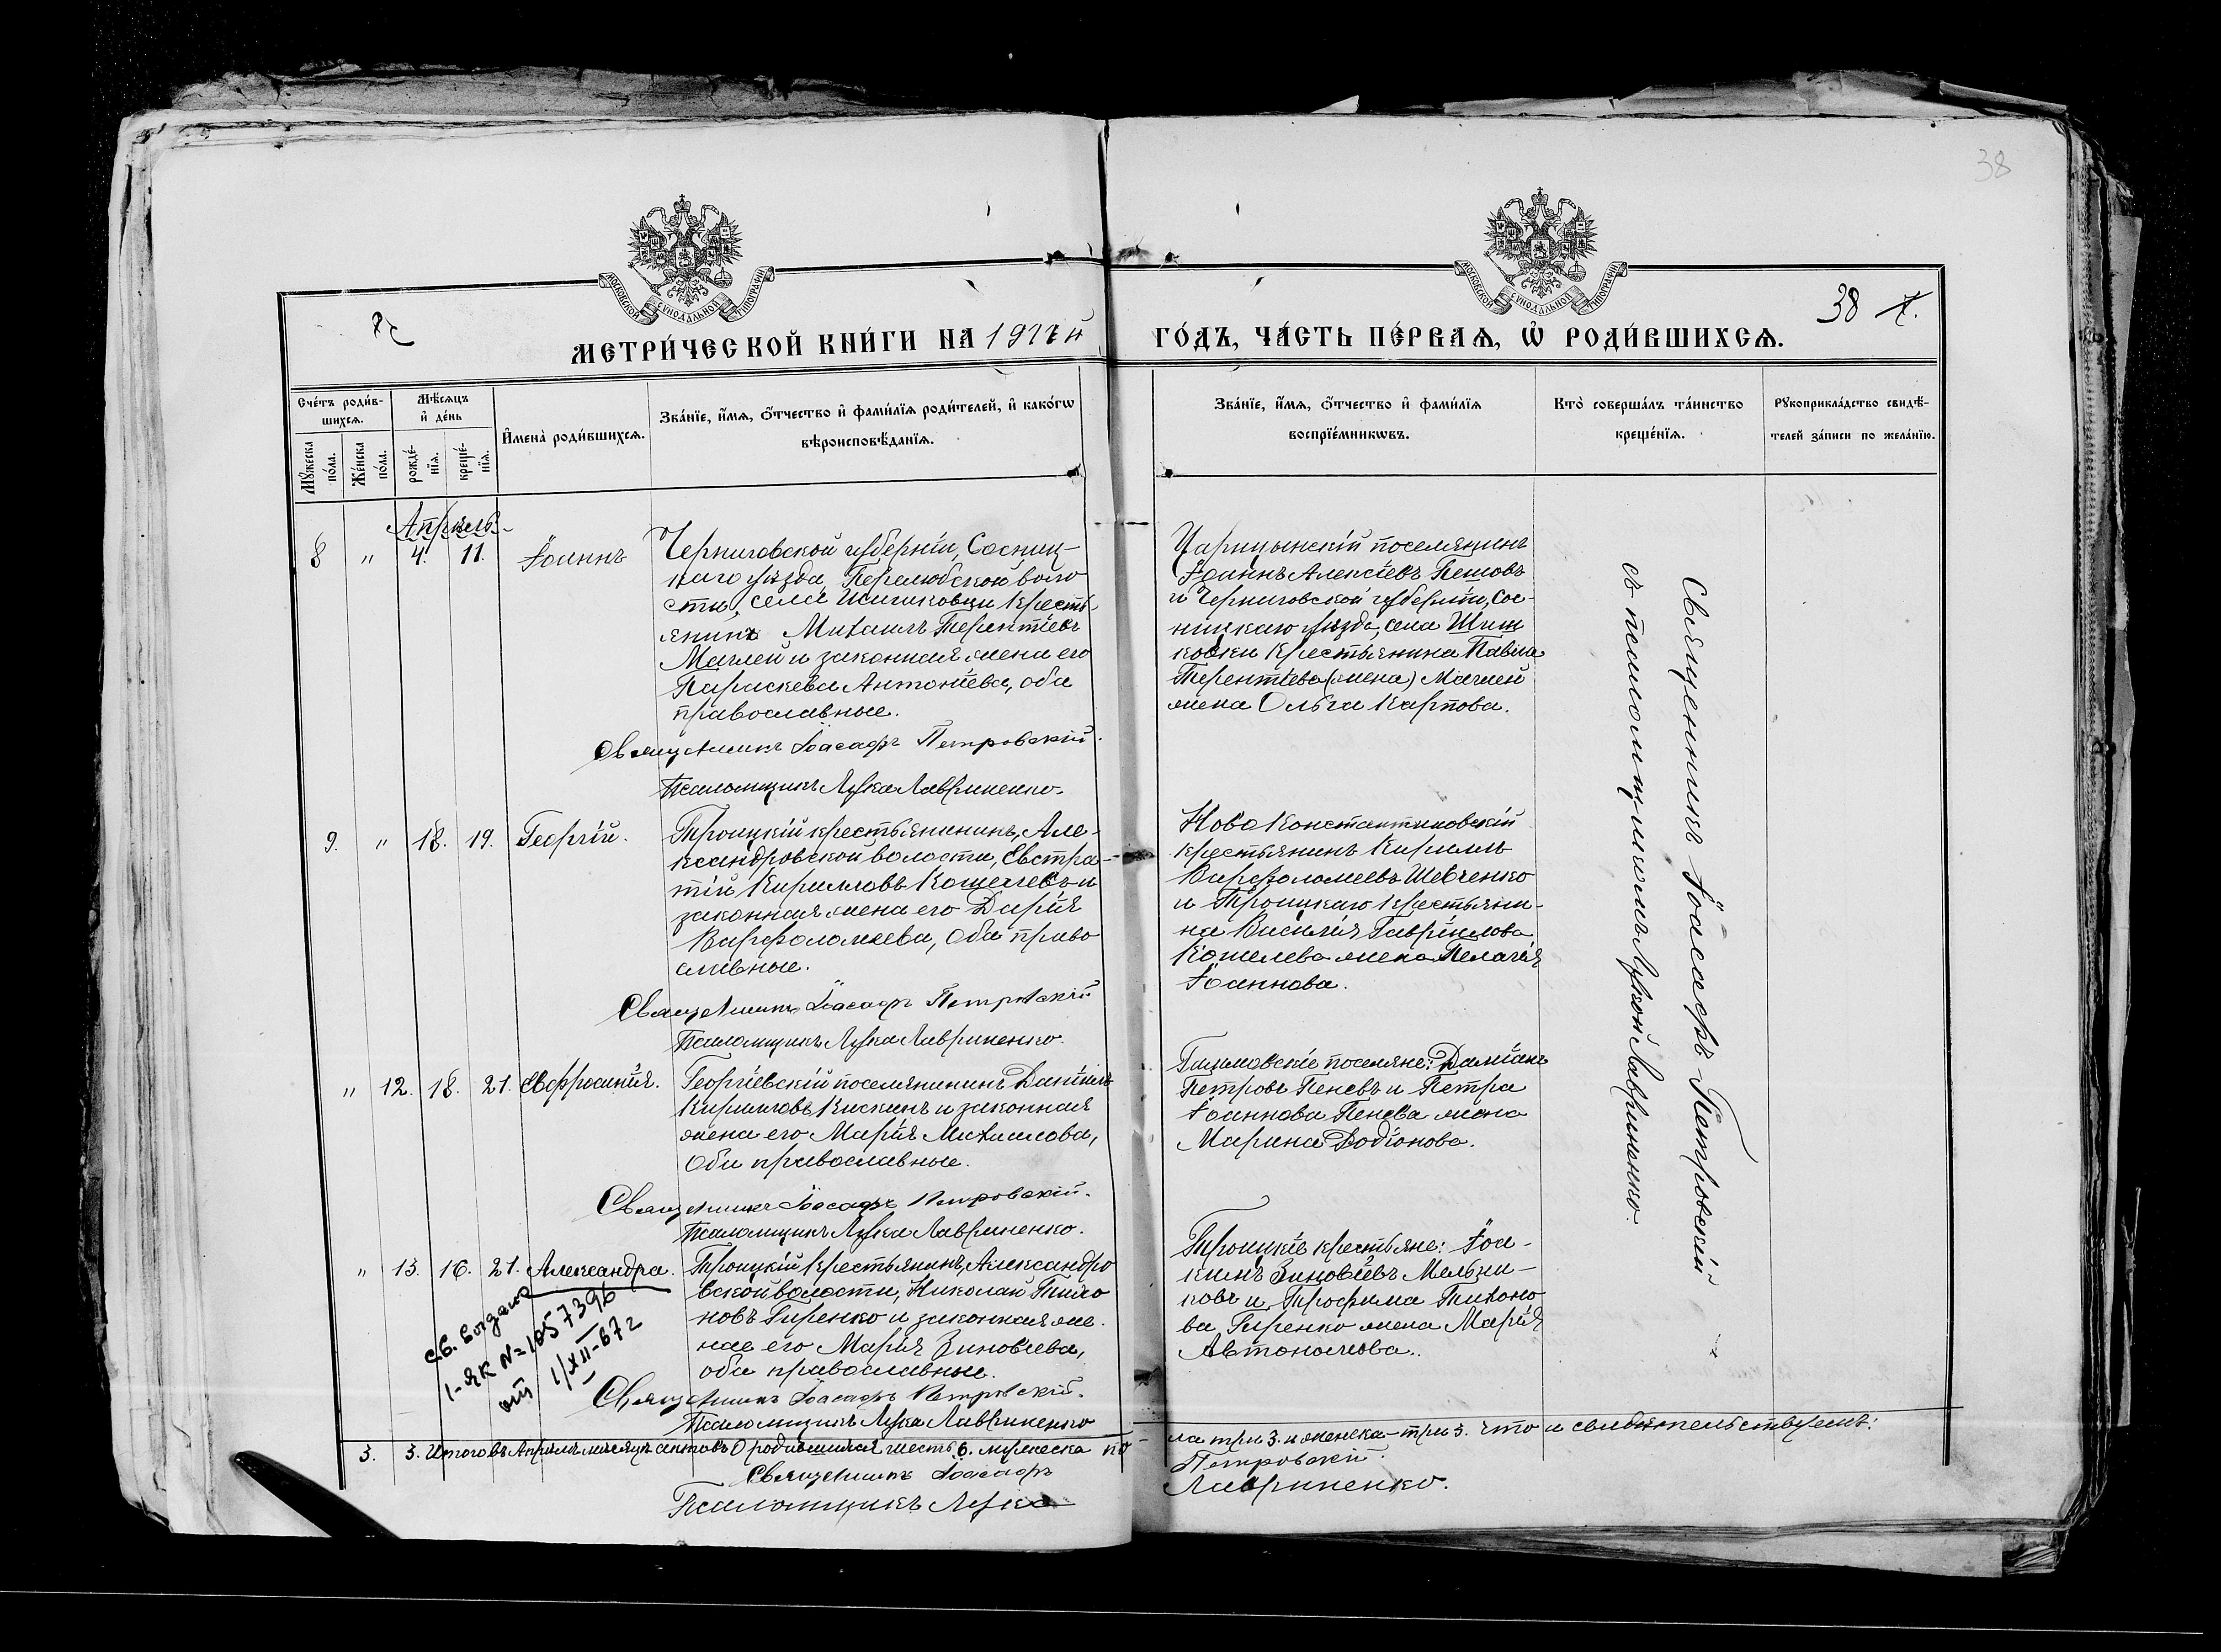 38
МОСКОВСКОЙ СУНОДАЛЬНОЙ ТИПОГРАФІИ
МОСКОВСКОЙ СУНОДАЛЬНОЙ ТИПОГРАФІИ
38
МЕТРИ́ЧЕСКОЙ КНИ́ГИ НА
ГО́ДЪ, ЧА́СТЬ ПЕ́РВАѦ, Ѡ҆ РОДИ́ВШИХСѦ.
Сче́тъ роди́в-
шихсѧ.
Мꙋ́жеска по́ла.
Же́нска по́ла.
Мѣ́сѧцъ
и҆ де́нь
рожде́-
нїѧ.
креще́-
нїѧ.
И҆мена̀ роди́вшихсѧ.
Зва́нїе, и҆́мѧ, ѻ҆́тчество и҆ фами́лїѧ роди́телей, и҆ како́гѡ
вѣроисповѣ́данїѧ.
Зва́нїе, и҆́мѧ, ѻ҆́тчество и҆ фами́лїѧ
воспрїе́мникѡвъ.
Кто̀ соверша́лъ та́инство
креще́нїѧ.
Рꙋкоприкла́дство свидѣ́-
телей за́писи по жела́нїю.
Апрѣль
8 " 4. 11. Іоаннъ
Черниговской губерніи, Сосниц-
каго уѣзда, Перелюбской воло
сти, села Шишковки кресть-
янинъ Михаилъ Терентіевъ
Мачлей и законная жена его
Параскева Антоніева, оба
православные.
Священникъ Іоасафъ Петровскій.
Псаломщикъ Лука Лавриненко.
Царицынскій поселянинъ
Іоаннъ Алексіевъ
и Черниговской губерніи, Сос-
ницкаго уѣзда, села Шиш
ковки крестьянина Павла
Терентіева (жена) Мачлей
жена Ольга Карпова.
9. " 18. 19. Георгій.
Троицкій крестьянинъ, Але-
ксандровской волости, Евстра-
тій Кирилловъ Кошелевъ и
законная жена его Дарія
Варфоломеева, оба право
славные.
Священникъ Іоасафъ Петровскій
Псаломщикъ Лука Лавриненко.
Ново Константиновскій
крестьянинъ Кириллъ
Варфоломеевъ Шевченко
и Троицкаго крестьяни-
на Василія Гавріилова
Кошелева жена Пелагія
Іоаннова.
" 12. 18. 21. Евфросинія.
Георгіевскій поселянинъ Даніилъ
Кирилловъ Кискинъ и законная
жена его Марія Михаилова,
оба православные.
Священникъ Іоасафъ Петровскій.
Псаломщикъ Лука Лавриненко.
поселяне: Даміанъ
Петровъ Пеневъ и Петра
Іоаннова Пенева жена
Марина Родіонова.
" 13. 16. 21. Александра.
Троицкій крестьянинъ, Александро
вской волости, Николай Тихо
новъ Гиренко и законная же-
на его Марія Зиновіева,
оба православные.
Священникъ Іоасафъ Петровскій.
Псаломщикъ Лука Лавриненко
Троицкіе крестьяне: Іоа-
кимъ Зиновіевъ Мельни-
ковъ и Трофима Тихоно
ва Гиренко жена Марія
Автономова.
св. выдано
I-ЯК № 1057396
от 1/XII-67 г
Священникъ Іоасафъ Петровскій
съ псаломщикомъ Лукой Лавриненко.
3. 3. Итого въ Апрѣлѣ мѣсяцѣ актовъ о родившихся шесть 6. мужеска по-
ла три 3. и женска-три 3. что и свидѣтельствуемъ:
Священникъ Іоасафъ Петровскій.
Псаломщикъ Лука Лавриненко.